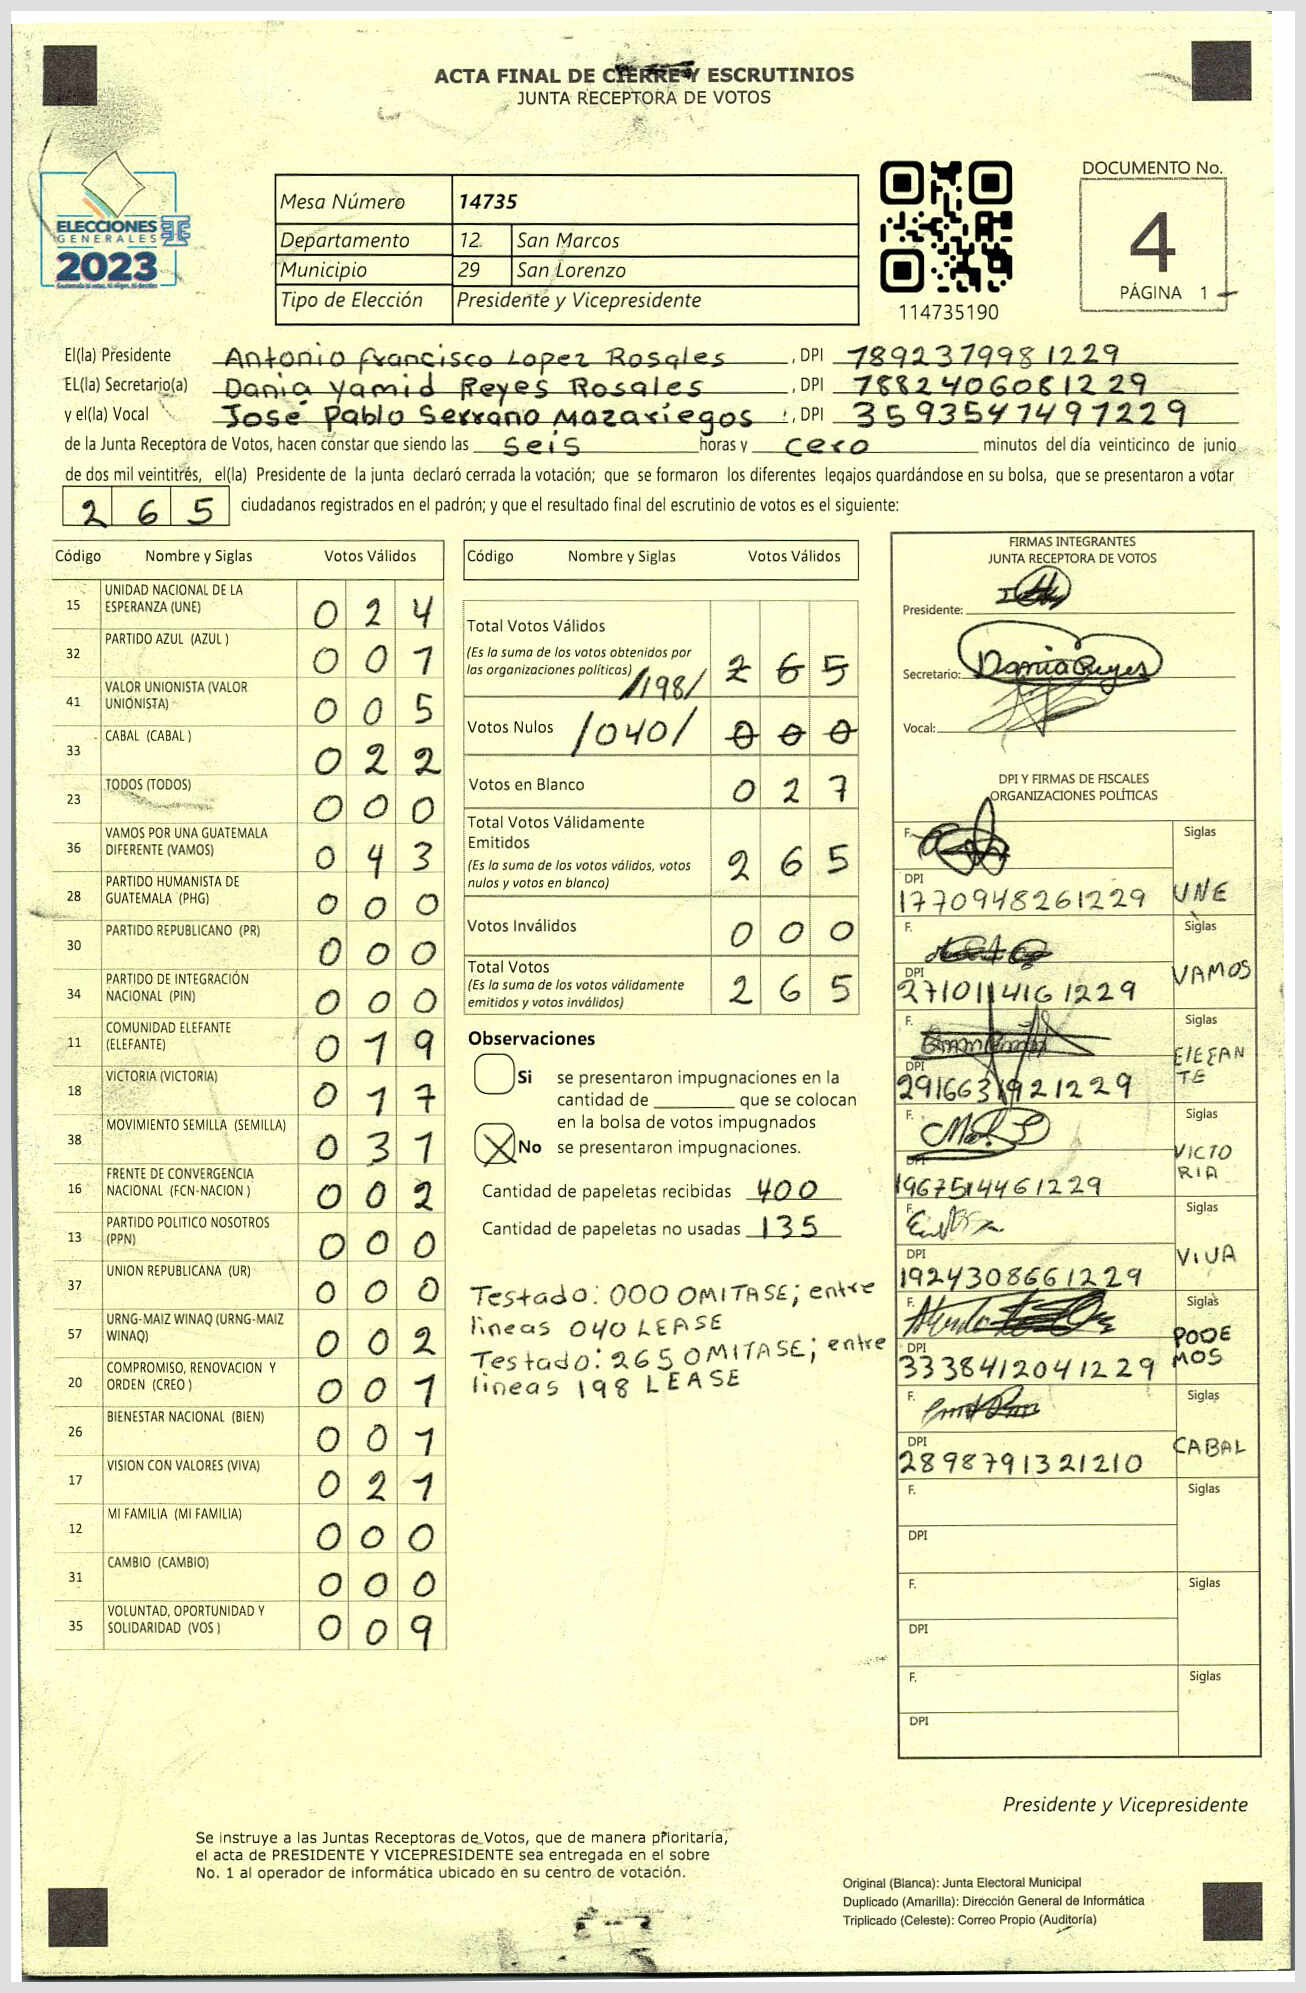 ACTA FINAL DE CIERRE Y ESCRUTINIOS
JUNTA RECEPTORA DE VOTOS
ELECCIONES
GENERALES
2023
Mesa Número 14735
Departamento 12 San Marcos
Municipio 29 San Lorenzo
Tipo de Elección Presidente y Vicepresidente
114735190
DOCUMENTO No.
4
PÁGINA 1
El(la) Presidente Antonio francisco Lopez Rosales , DPI 7892379981229
EL(la) Secretario(a) Dania Yamid Reyes Rosales , DPI 7882406081229
y el(la) Vocal José Pablo Serrano Mazariegos , DPI 3593547497229
de la Junta Receptora de Votos, hacen constar que siendo las seis horas y cero minutos del día veinticinco de junio
de dos mil veintitrés, el(la) Presidente de la junta declaró cerrada la votación; que se formaron los diferentes legajos guardándose en su bolsa, que se presentaron a votar
265 ciudadanos registrados en el padrón; y que el resultado final del escrutinio de votos es el siguiente:
Código Nombre y Siglas Votos Válidos
15 UNIDAD NACIONAL DE LA ESPERANZA (UNE) 024
32 PARTIDO AZUL (AZUL ) 001
41 VALOR UNIONISTA (VALOR UNIONISTA) 005
33 CABAL (CABAL ) 022
23 TODOS (TODOS) 000
36 VAMOS POR UNA GUATEMALA DIFERENTE (VAMOS) 043
28 PARTIDO HUMANISTA DE GUATEMALA (PHG) 000
30 PARTIDO REPUBLICANO (PR) 000
34 PARTIDO DE INTEGRACIÓN NACIONAL (PIN) 000
11 COMUNIDAD ELEFANTE (ELEFANTE) 019
18 VICTORIA (VICTORIA) 017
38 MOVIMIENTO SEMILLA (SEMILLA) 031
16 FRENTE DE CONVERGENCIA NACIONAL (FCN-NACION ) 002
13 PARTIDO POLITICO NOSOTROS (PPN) 000
37 UNION REPUBLICANA (UR) 000
57 URNG-MAIZ WINAQ (URNG-MAIZ WINAQ) 002
20 COMPROMISO, RENOVACION Y ORDEN (CREO ) 001
26 BIENESTAR NACIONAL (BIEN) 001
17 VISION CON VALORES (VIVA) 021
12 MI FAMILIA (MI FAMILIA) 000
31 CAMBIO (CAMBIO) 000
35 VOLUNTAD, OPORTUNIDAD Y SOLIDARIDAD (VOS ) 009
Código Nombre y Siglas Votos Válidos
Total Votos Válidos
(Es la suma de los votos obtenidos por
las organizaciones políticas) /198/ 265
Votos Nulos /040/ 000
Votos en Blanco 027
Total Votos Válidamente
Emitidos
(Es la suma de los votos válidos, votos
nulos y votos en blanco) 265
Votos Inválidos 000
Total Votos
(Es la suma de los votos válidamente
emitidos y votos inválidos) 265
Observaciones
Si se presentaron impugnaciones en la
cantidad de ________ que se colocan
en la bolsa de votos impugnados
X No se presentaron impugnaciones.
Cantidad de papeletas recibidas 400
Cantidad de papeletas no usadas 135
Testado: 000 OMITASE; entre
lineas 040 LEASE
Testado: 265 OMITASE; entre
lineas 198 LEASE
FIRMAS INTEGRANTES
JUNTA RECEPTORA DE VOTOS
Presidente:
Secretario: Dania Reyes
Vocal:
DPI Y FIRMAS DE FISCALES
ORGANIZACIONES POLÍTICAS
F. Siglas
DPI 1770948261229 UNE
F. Siglas
DPI 2710114161229 VAMOS
F. Siglas
DPI 2916631921229 ElEFAN
TE
F. Siglas
DPI 1967514461229 VICTO
RIA
F. Siglas
DPI 1924308661229 VIVA
F. Siglas
DPI 3338412041229 PODE
MOS
F. Siglas
DPI 2898791321210 CABAL
F. Siglas
DPI
F. Siglas
DPI
F. Siglas
DPI
Presidente y Vicepresidente
Se instruye a las Juntas Receptoras de Votos, que de manera prioritaria,
el acta de PRESIDENTE Y VICEPRESIDENTE sea entregada en el sobre
No. 1 al operador de informática ubicado en su centro de votación.
Original (Blanca): Junta Electoral Municipal
Duplicado (Amarilla): Dirección General de Informática
Triplicado (Celeste): Correo Propio (Auditoría)